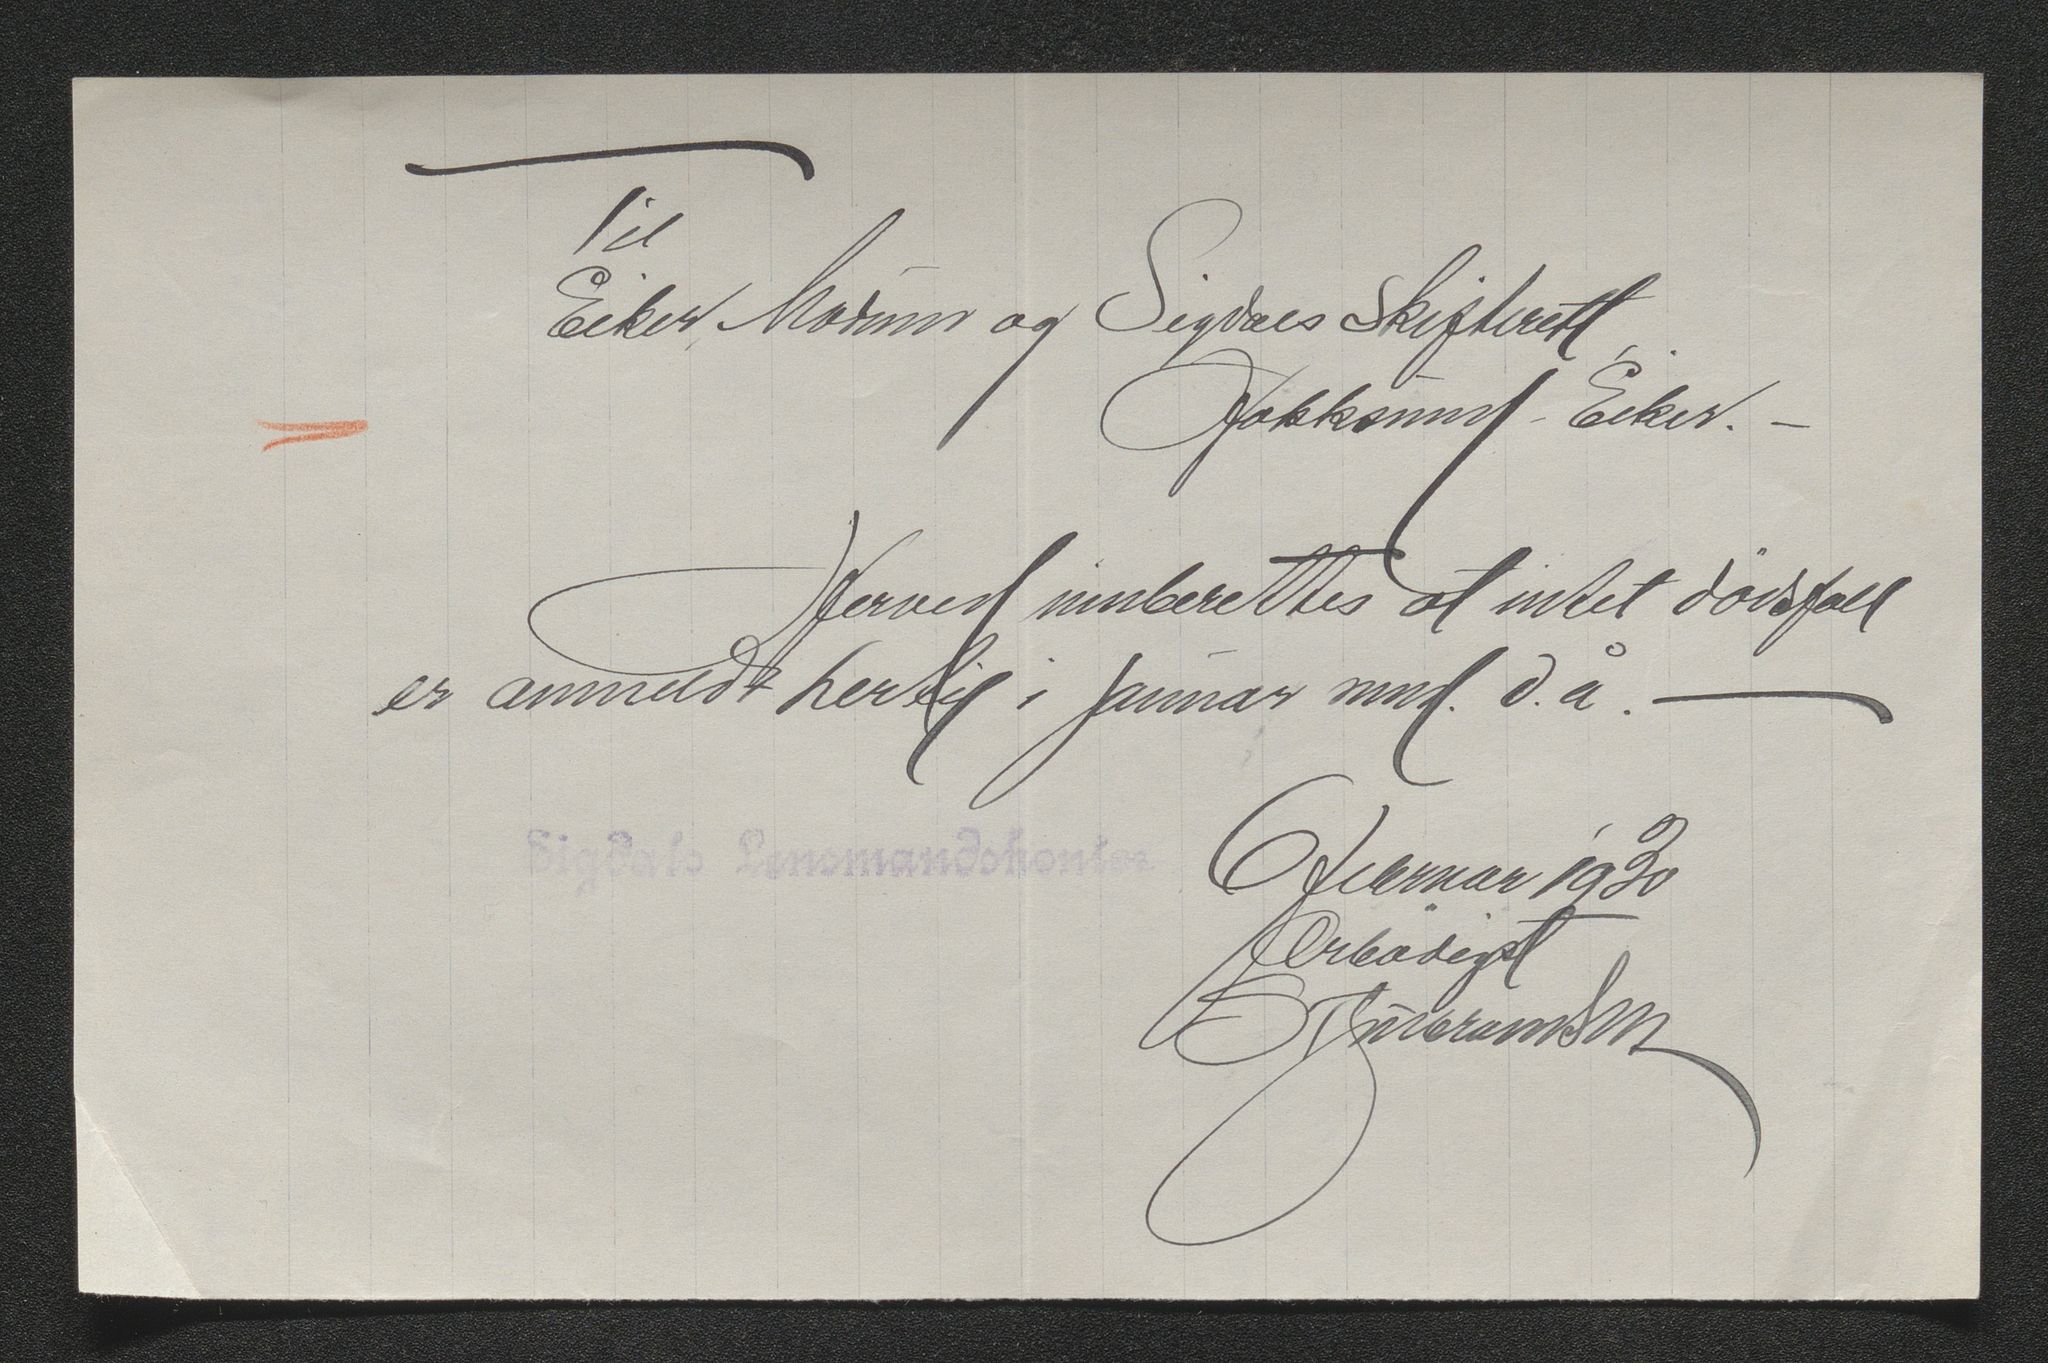 Til
Eiker, Modum og Sigdals Skifterett,
Hokksund - Eiker. -
Herved innberettes at intet dödsfall
er anmeldt hertil i januar mnd. d. å. -
Sigdals Lensmandskontor
6 februar 1930
Ærbödigst